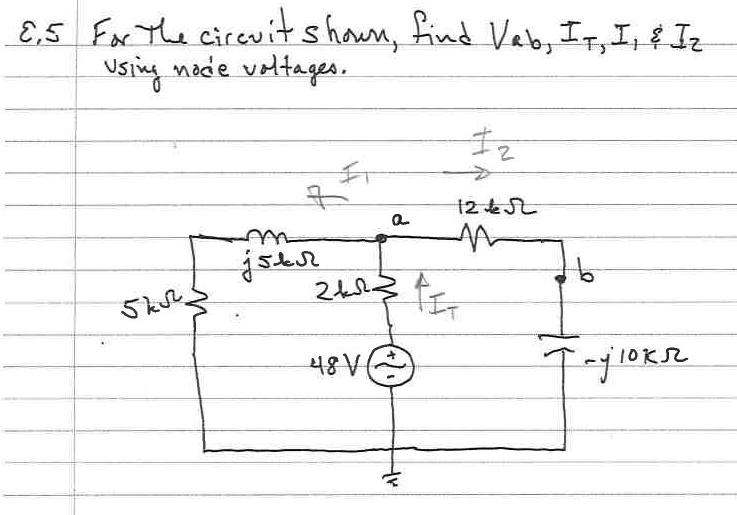 E.5 For The circuit shown, find Vab, IT, I1 & I2
using node voltages.
I2
I1
a
12kΩ
j5kΩ
b
5kΩ
2kΩ
IT
48V
+
-
-j10KΩ